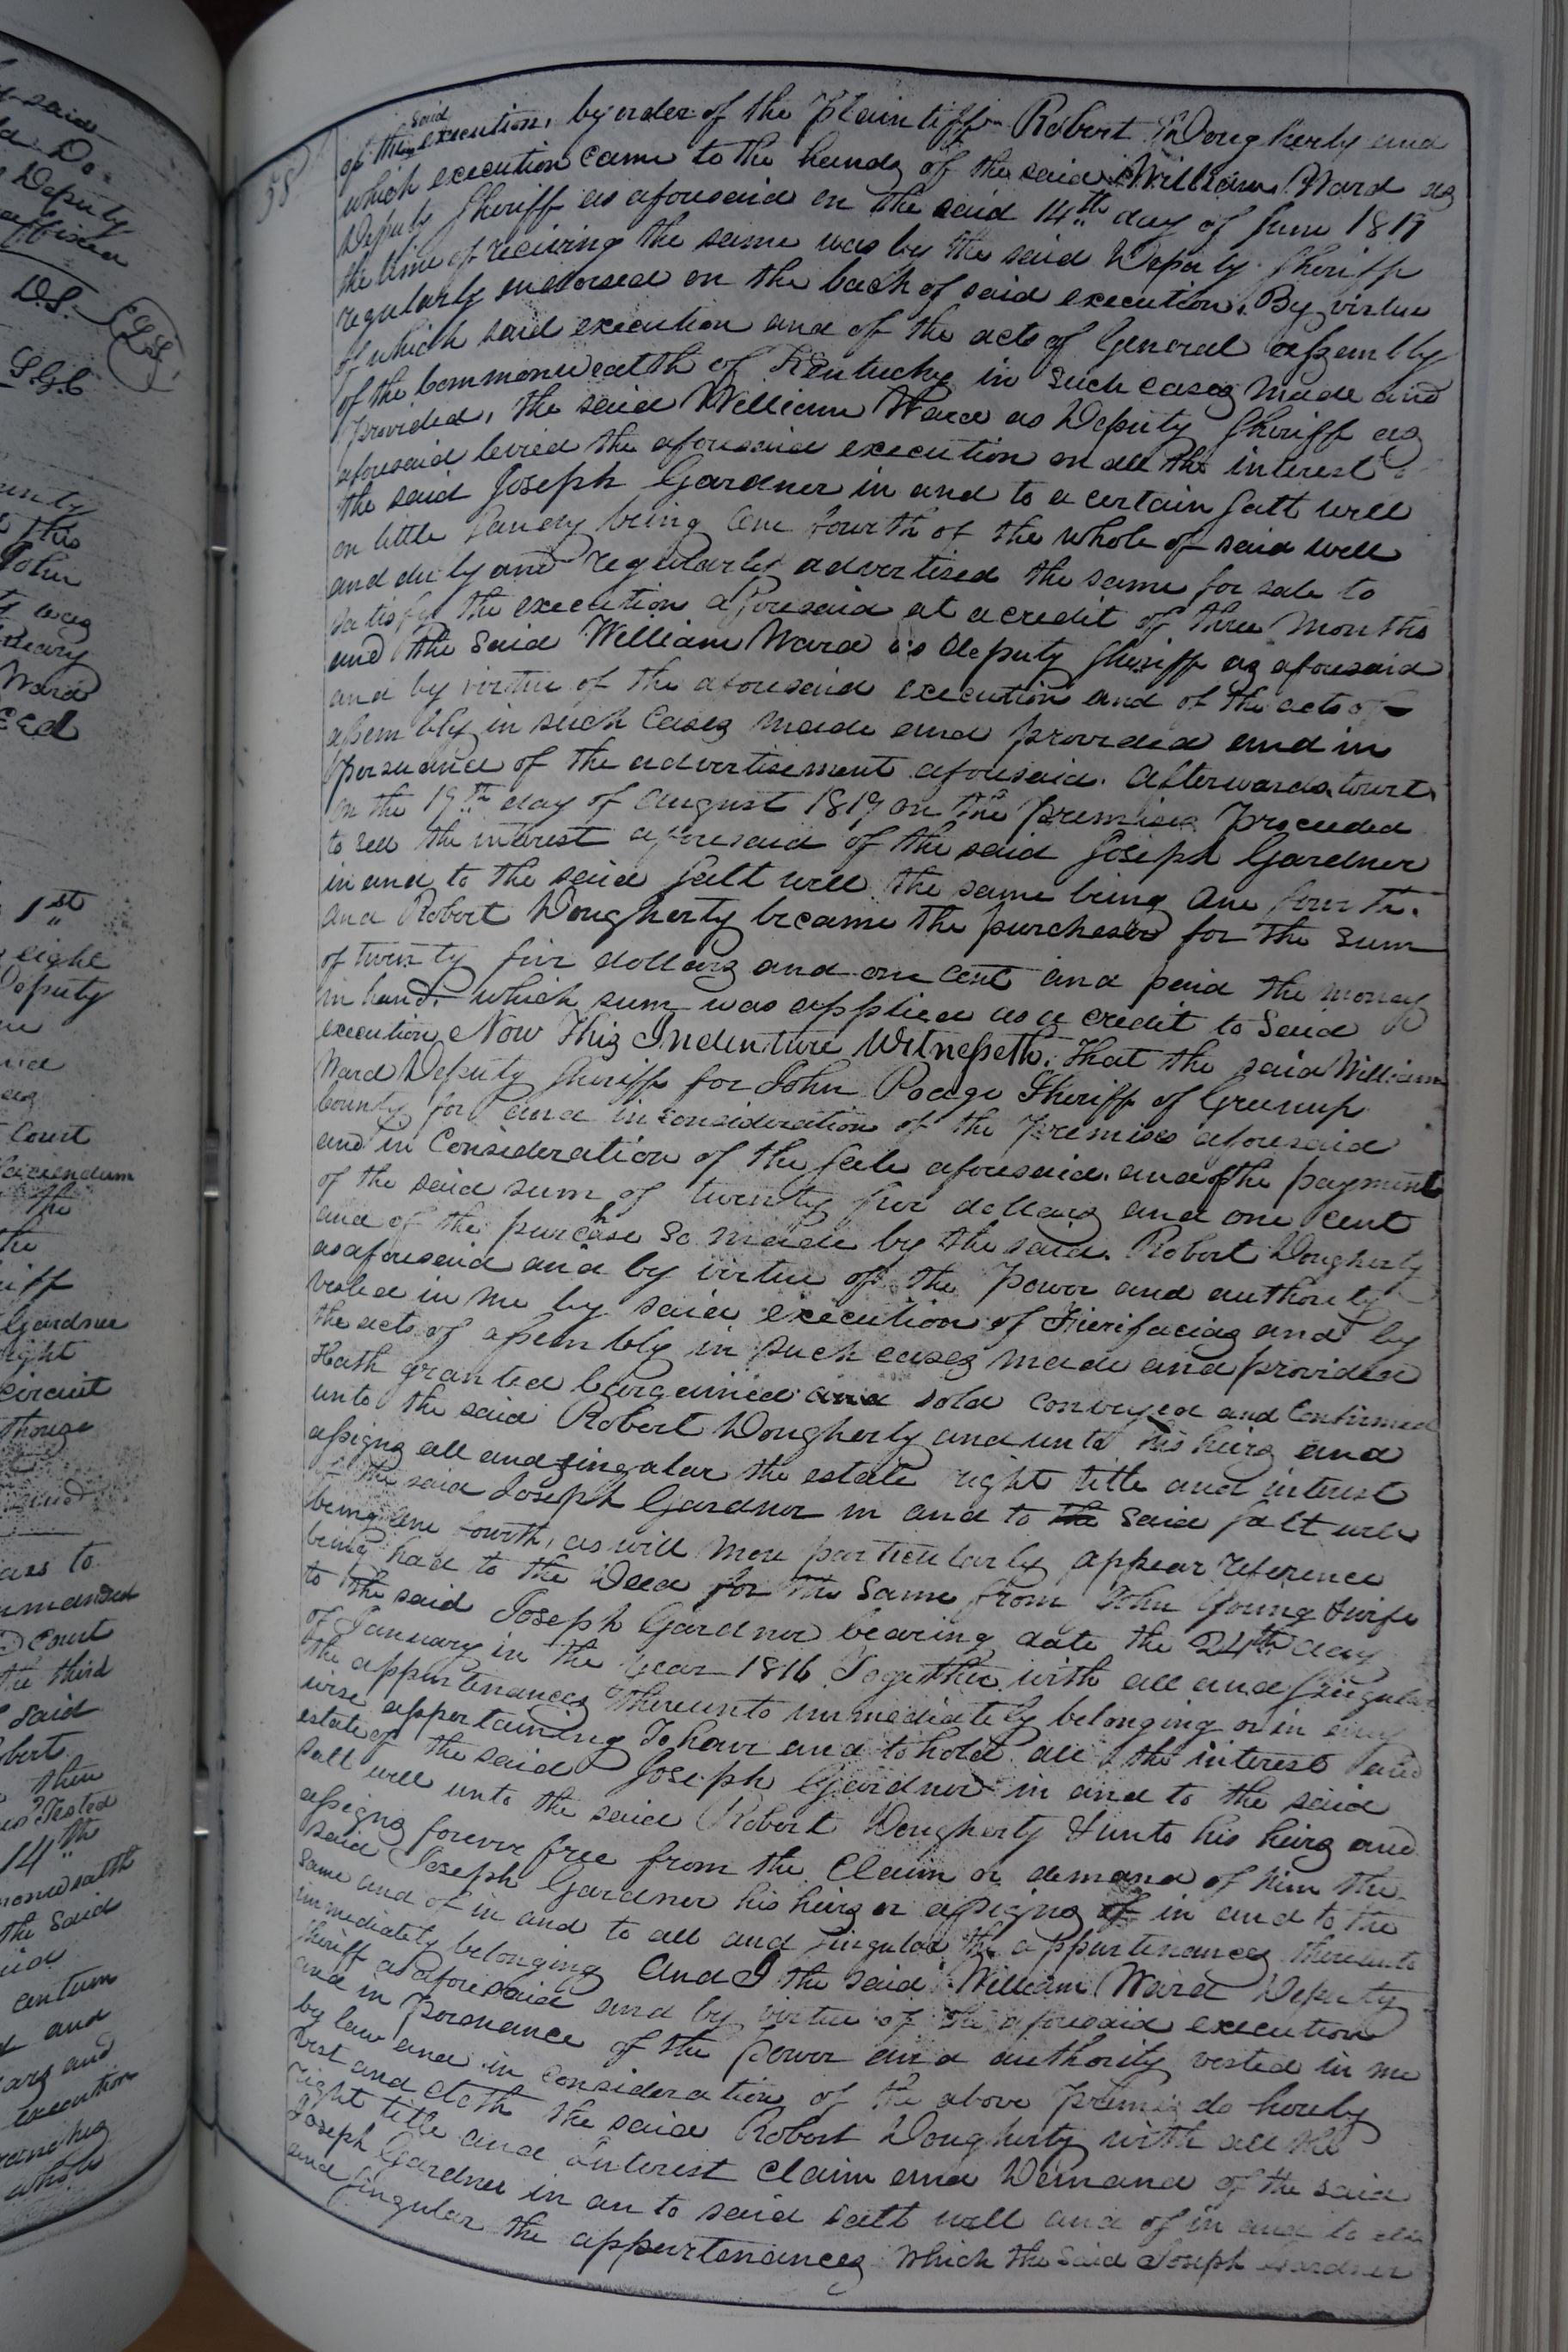 said
Do.
Deputy
affixed
D.S.
L.S.
S.G.C
this
John
was
Ward
1st
eight
Deputy
Court
the
Gardner
right
circuit
to
Court
the third
said
then
Tested
14th
the said
and
execution
58
said
of the execution, by order of the Plaintiff Robert Dougherty and
which execution came to the hands of the said William Ward as
Deputy Sheriff as aforesaid on the said 14th day of June 1819
the time of reciving the same was by the said Deputy Sheriff
regularly endorsed on the back of said execution. By virtue
of which said execution and of the acts of General assembly
of the Commonwealth of Kentucky in such cases made and
provided, the said William Ward as Deputy Sheriff as
aforesaid levied the aforesaid execution on all the interest
the said Joseph Gardner in and to a certain Salt well
on little Sandy being one fourth of the whole of said well
and duly and regularly advertised the same for sale to
satisfy the execution aforesaid at a credit of three months
and the said William Ward as deputy Sheriff as aforesaid
and by virtue of the aforesaid execution and of the acts of
assembly in such Cases made and provided and in
persuance of the advertisement aforesaid. afterwards towit
on the 19th day of august 1819 on the premises proceeded
to sell the interest aforesaid of the said Joseph Gardner
in and to the said Salt well the same being one fourth.
and Robert Dougherty became the purcheser for the sum
of twenty five dollars and one cent and paid the money
in hand. which sum was applied as a credit to said
execution Now This Indenture Witnesseth. that the said William
Ward Deputy Sheriff for John Poage Sheriff of Greenup
County for and in consideration of the premises aforesaid
and in Consideration of the sale aforesaid. and of the payment
of the said sum of twenty five dollars and one cent
and of the purchase so made by the said Robert Dougherty
as aforesaid and by virtue of the power and authority
vested in me by said execution of Fierifacias and by
the acts of assembly in such cases made and provided
Hath granted bargained and sold conveyed and Confirmed
unto the said Robert Dougherty and unto his heirs and
assigns all and singular the estate right title and interest
of the said Joseph Gardner in and to the said salt well
being one fourth, as will more particularly appear reference
being had to the Deed for the same from John Young & wife
to the said Joseph Gardner bearing date the 24th day
of January in the year 1816 Together with all and singular
the appurtenances thereunto immediately belonging or in any
wise appertaining To have and to hold all the interest and
estate of the said Joseph Gardner in and to the said
salt well unto the said Robert Dougherty & unto his heirs and
assigns forever free from the Claim or demand of him the
said Joseph Gardner his heirs or assigns of in and to the
same and of in and to all and singular the appurtenances thereunto
immediately belonging And I the said William Ward Deputy
Sheriff as aforesaid and by virtue of the aforesaid execution
and in porsuance of the power and authority vested in me
by law and in consideration of the above premis do hereby
vest and cloth the said Robert Dougherty with all the
right title and Interest Claim and Demand of the said
Joseph Gardner in an to said salt well and of in and to all
and singular the appurtenances which the said Joseph Gardner